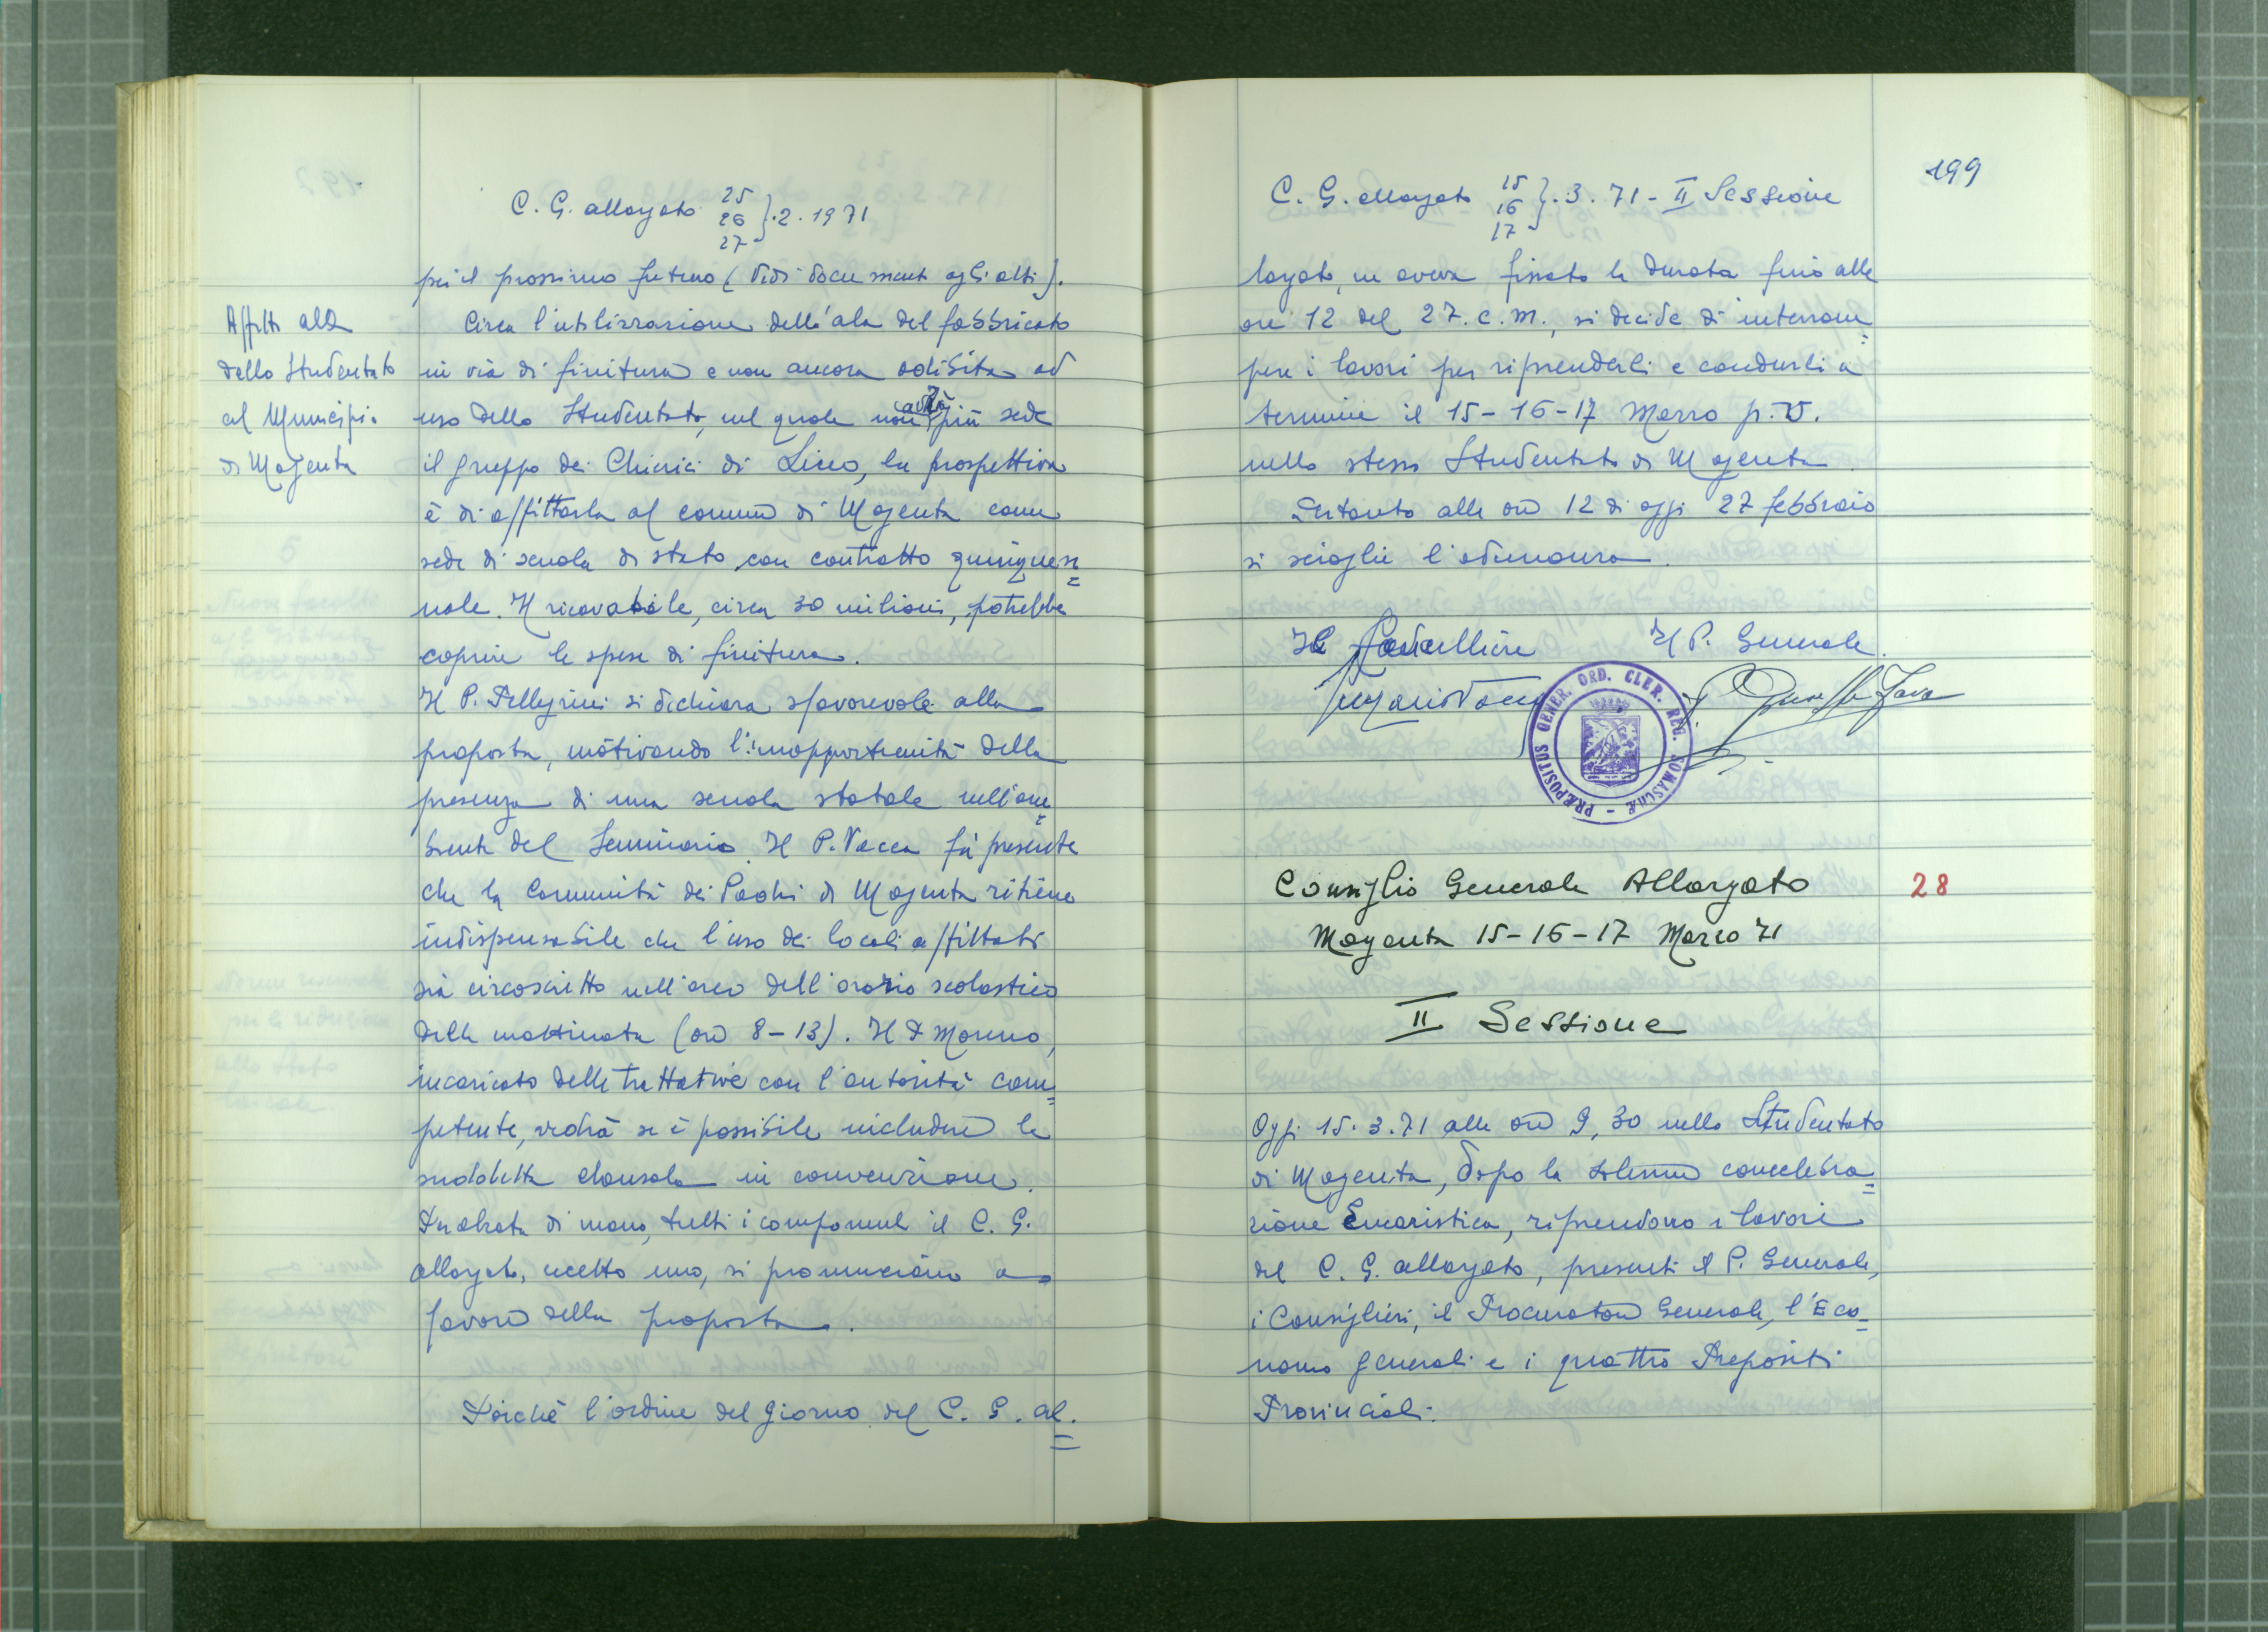 C. G. allargato 25 26 27 }.2.1971
per il prossimo futuro (vedi documenti agli atti).
Affitto ala
dello Studentato
al Municipio
di Magenta
Circa l'utilizzazione dell'ala del fabbricato
in via di finitura e non ancora adibita ad
uso dello Studentato, nel quale non avrà più sede
il gruppo dei Chierici di Liceo, la prospettiva
è di affittarla al comune di Magenta come
sede di scuola di stato, con contratto quinquen=
nale. Il ricavabile, circa 30 milioni, potrebbe
coprire le spese di finitura.
Il P. Pellegrini si dichiara sfavorevole alla
proposta, motivando l'inopportunità della
presenza di una scuola statale nell'am=
biente del Seminario. Il P. Vacca fa presente
che la Comunità dei Padri di Magenta ritiene
indispensabile che l'uso dei locali affittati
sia circoscritto nell'arco dell'orario scolastico
della mattinata (ore 8-13). Il P. Moreno,
incaricato delle trattative con l'autorità com=
petente, vedrà se è possibile includere la
suddetta clausola in convenzione.
Per alzata di mano, tutti i componenti il C. G.
allargato, eccetto uno, si pronunciano a
favore della proposta.
Poichè l'ordine del giorno del C. G. al=
199
C. G. allargato 15 16 17 }.3.71 - II Sessione
largato, ne aveva fissato la durata fino alle
ore 12 del 27. c. m., si decide di interrom=
pere i lavori per riprenderli e condurli a
termine il 15-16-17 Marzo p. v.
nello stesso Studentato di Magenta.
Pertanto alle ore 12 di oggi 27 febbraio
si scioglie l'adunanza.
Il Cancelliere Il P. Generale.
PRÆPOSITUS GENER. ORD. CLER. REG. SOMASCHÆ
Consiglio Generale Allargato 28
Magenta 15-16-17 Marzo 71
II Sessione
Oggi 15.3.71 alle ore 9,30 nello Studentato
di Magenta, dopo la solenne concelebra=
zione Eucaristica, riprendono i lavori
del C. G. allargato, presenti il P. Generale,
i Consiglieri, il Procuratore Generale, l'Eco=
nomo generali e i quattro Prepositi
Provinciali.